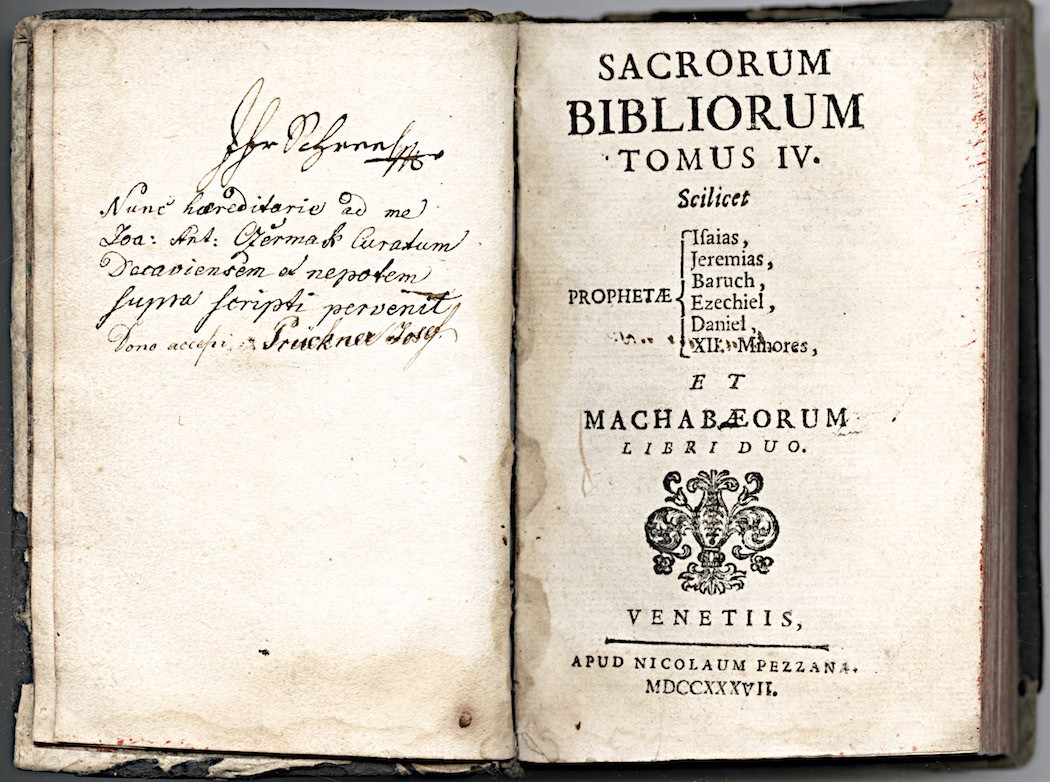 Nunc hæreditario ad me
Joa: Ant: Czermak Curatum
Dacaviensem et nepotem
supra scripti pervenit
Dono accepi Pruckner Josef.
SACRORUM
BIBLIORUM
TOMUS IV.
Scilicet
PROPHETÆ
Isaias,
Jeremias,
Baruch,
Ezechiel,
Daniel,
XII. Minores,
ET
MACHABÆORUM
LIBRI DUO.
VENETIIS,
APUD NICOLAUM PEZZANA.
MDCCXXXVII.